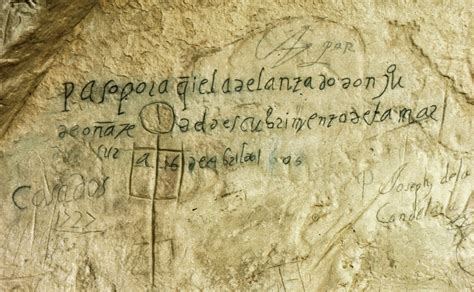 paso por aq̃i el adelantado don ju
de oñate del descubrimiento de la mar
sur a 16 de abril
Casados
1727
P Joseph de la
Candela